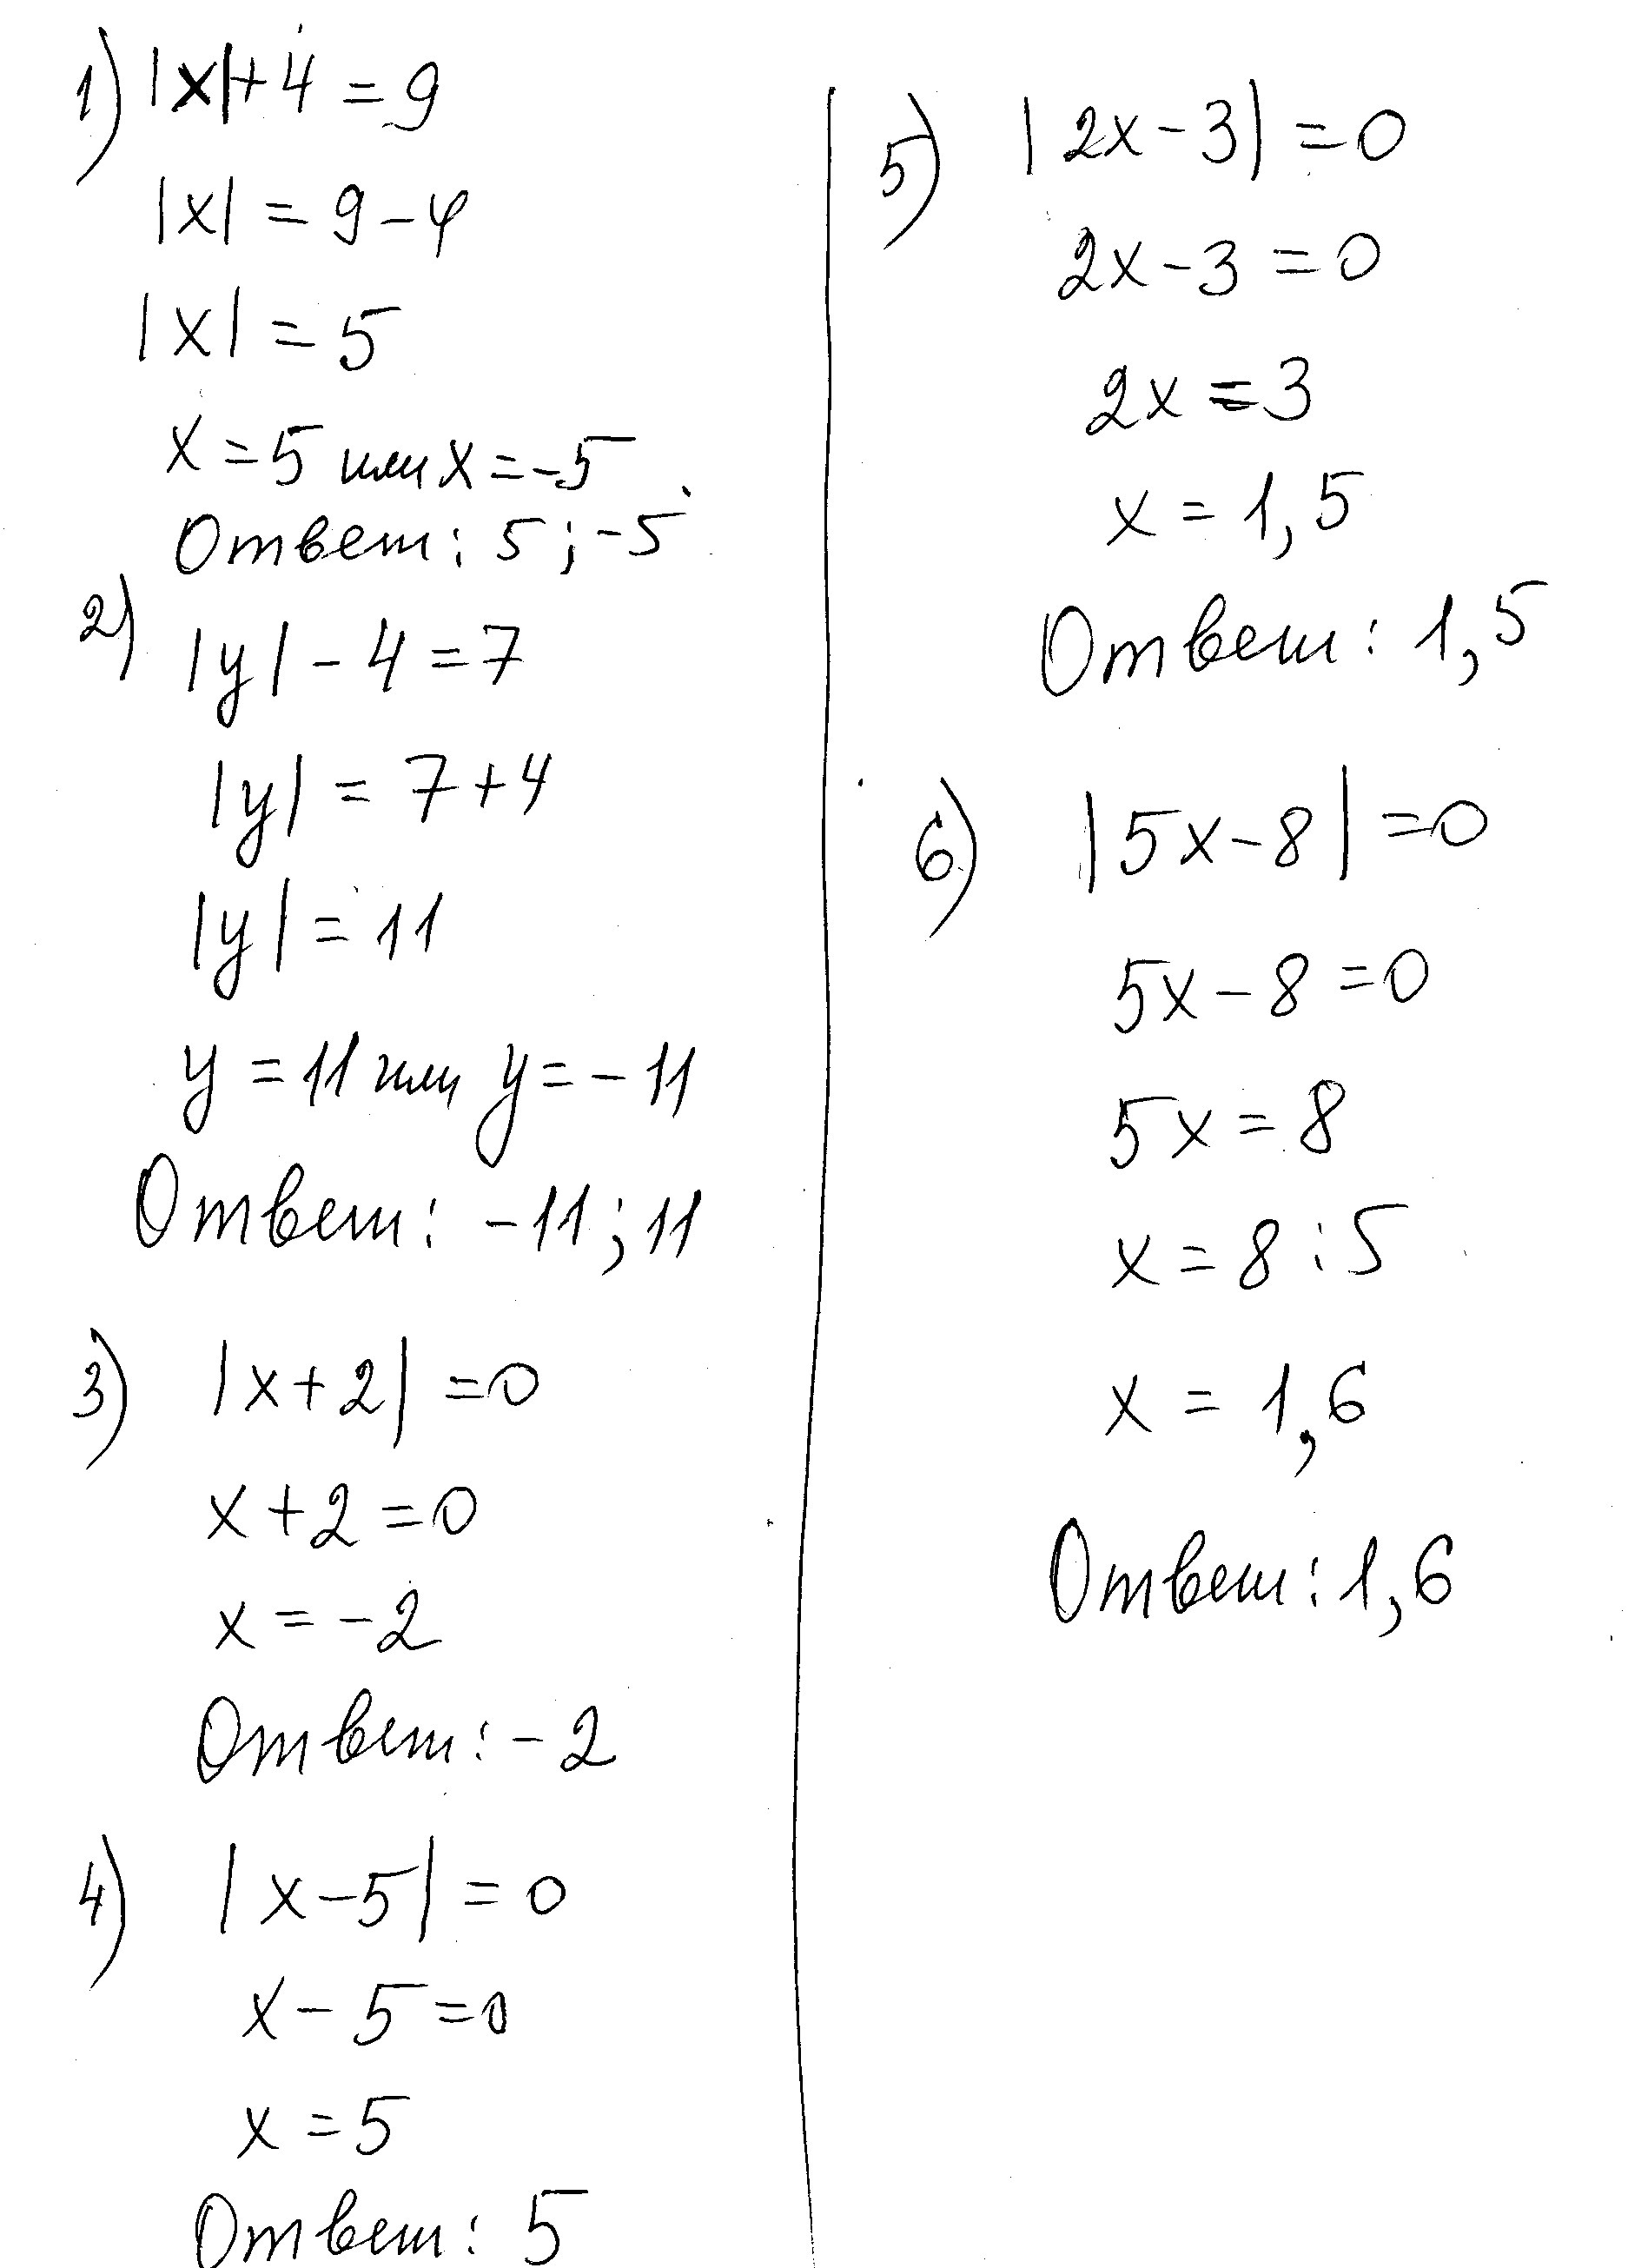 1) |x|+4=9
|x|=9-4
|x|=5
x=5 или x=-5
Ответ: 5; -5
2) |y|-4=7
|y|=7+4
|y|=11
y=11 или y=-11
Ответ: -11; 11
3) |x+2|=0
x+2=0
x=-2
Ответ: -2
4) |x-5|=0
x-5=0
x=5
Ответ: 5
5) |2x-3|=0
2x-3=0
2x=3
x=1,5
Ответ: 1,5
6) |5x-8|=0
5x-8=0
5x=8
x=8:5
x=1,6
Ответ: 1,6